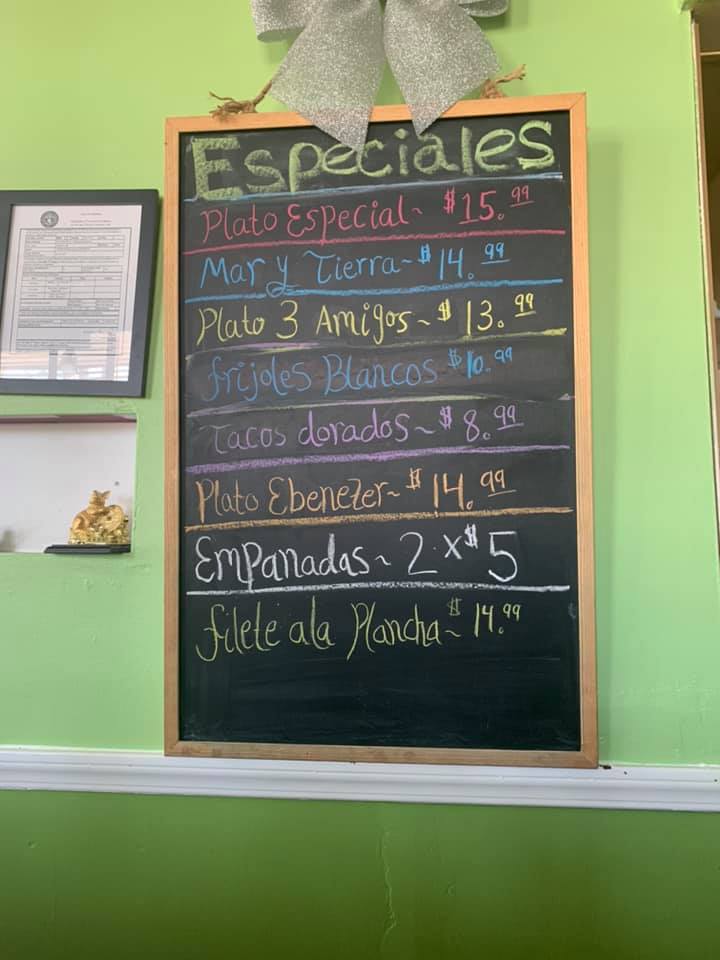 Especiales
Plato Especial ~ $15.99
Mar y Tierra ~ $14.99
Plato 3 Amigos ~ $13.99
frijoles Blancos $10.99
Tacos dorados ~ $8.99
Plato Ebenezer ~ $14.99
Empanadas ~ 2 x $5
filete ala Plancha ~ $14.99